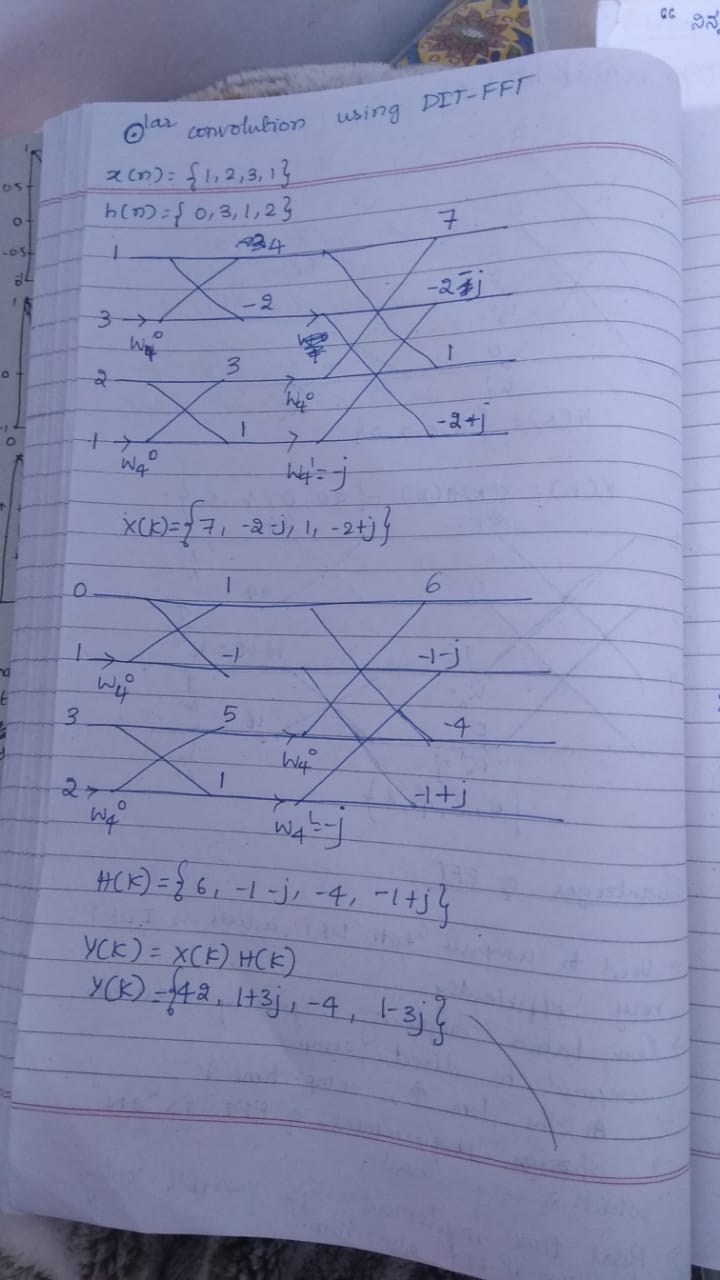 ⊙lar convolution using DIT-FFT
x(n)= {1,2,3,1}
h(n)={ 0,3,1,2}
1 4 7
3 W4⁰ -2 -2-j
2 3 W4⁰ 1
1 W4⁰ 1 W4¹=-j -2+j
X(K)={7, -2-j, 1, -2+j}
0 1 6
1 W4⁰ -1 -1-j
3 5 W4⁰ -4
2 W4⁰ 1 W4¹=-j -1+j
H(K)={6, -1-j, -4, -1+j}
Y(K) = X(K) H(K)
Y(K) ={42, 1+3j, -4, 1-3j}